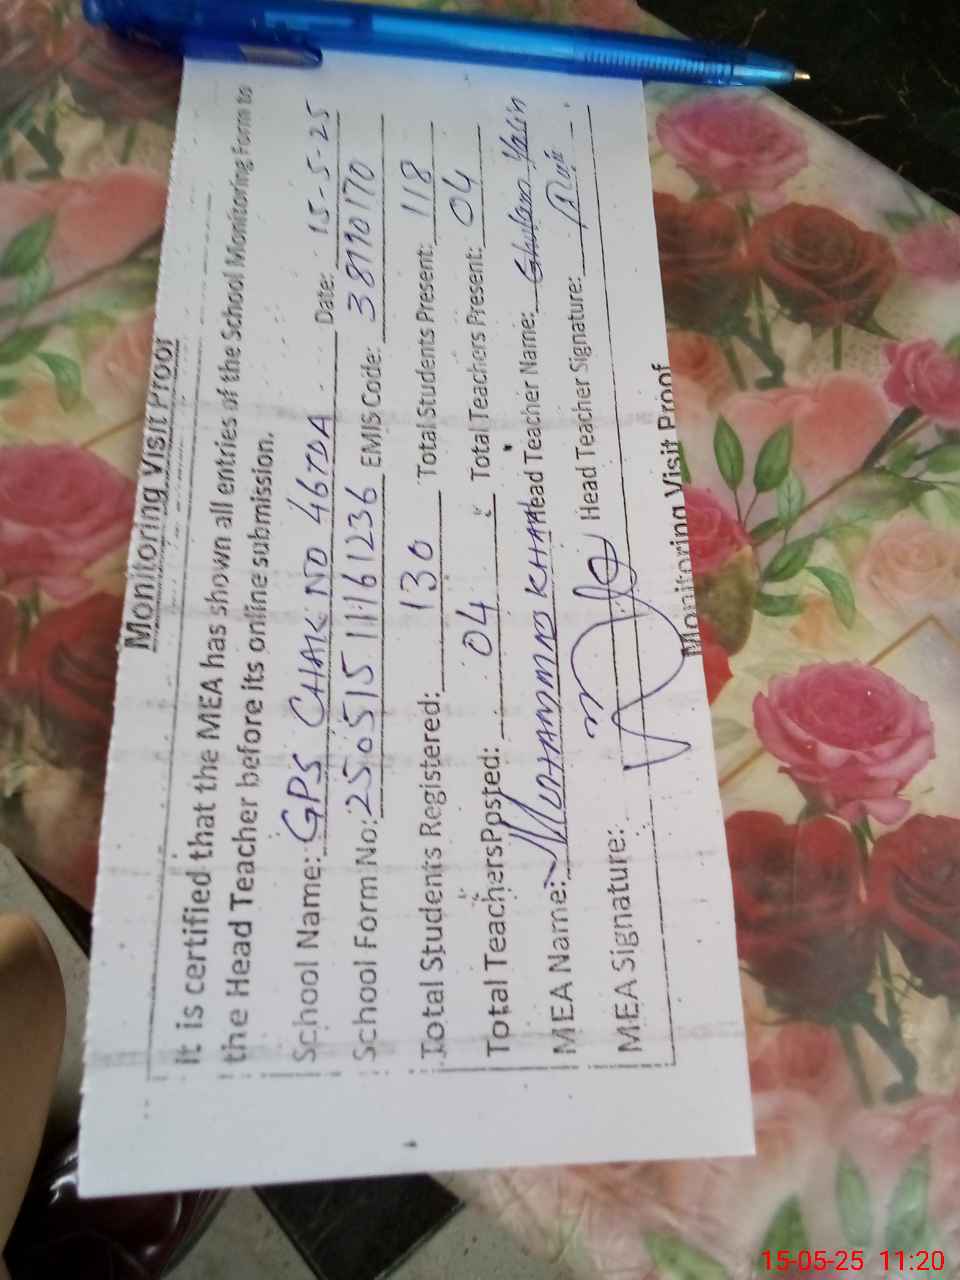 Monitoring Visit Proof
It is certified that the MEA has shown all entries of the School Monitoring Form to
the Head Teacher before its online submission.
School Name: GPS CHAK NO 46TDA Date: 15-5-25
School Form No: 25051511161236 EMIS Code: 38190170
Total Students Registered: 130 Total Students Present: 118
Total Teachers Posted: 04 Total Teachers Present: 04
MEA Name: MUHAMMAD KHAN Head Teacher Name: Ghulam Yasin
MEA Signature: Head Teacher Signature:
Monitoring Visit Proof
15-05-25 11:20